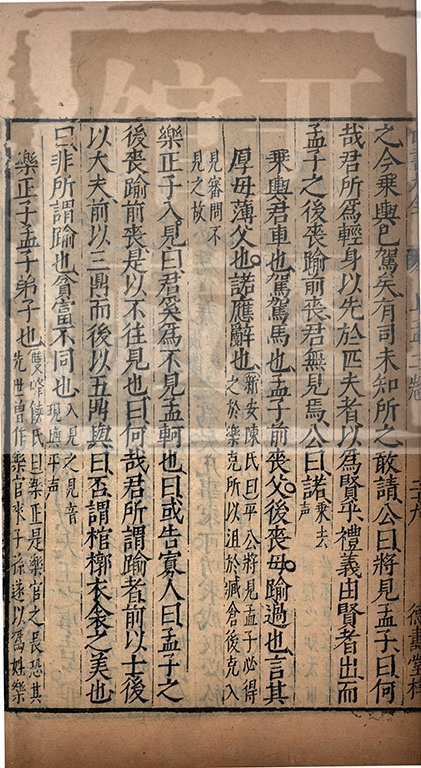 之今乘輿已駕矣有司未知所之敢請公曰將見孟子曰何
哉君所爲輕身以先於匹夫者以爲賢乎禮義由賢者出而
孟子之後喪踰前喪君無見焉公曰諾乘去
乘輿君車也駕駕馬也孟子前喪父後喪母踰過也言其
厚母薄父也諾應辭也新安陳氏曰平公將見孟子必得
之於樂克所以沮於臧倉後克入
見審問不
見之故
樂正子入見曰君奚爲不見孟軻也曰或告寡人曰孟子之
後喪踰前喪是以不往見也曰何哉君所謂踰者前以士後
以大夫前以三鼎而後以五鼎與曰否謂棺槨衣衾之美也
曰非所謂踰也貧富不同也入見之見音
現與平聲
樂正子孟子弟子也雙峰饒氏曰樂正是樂官之長恐其
先世曾作樂官來子孫遂以爲姓樂
二十九